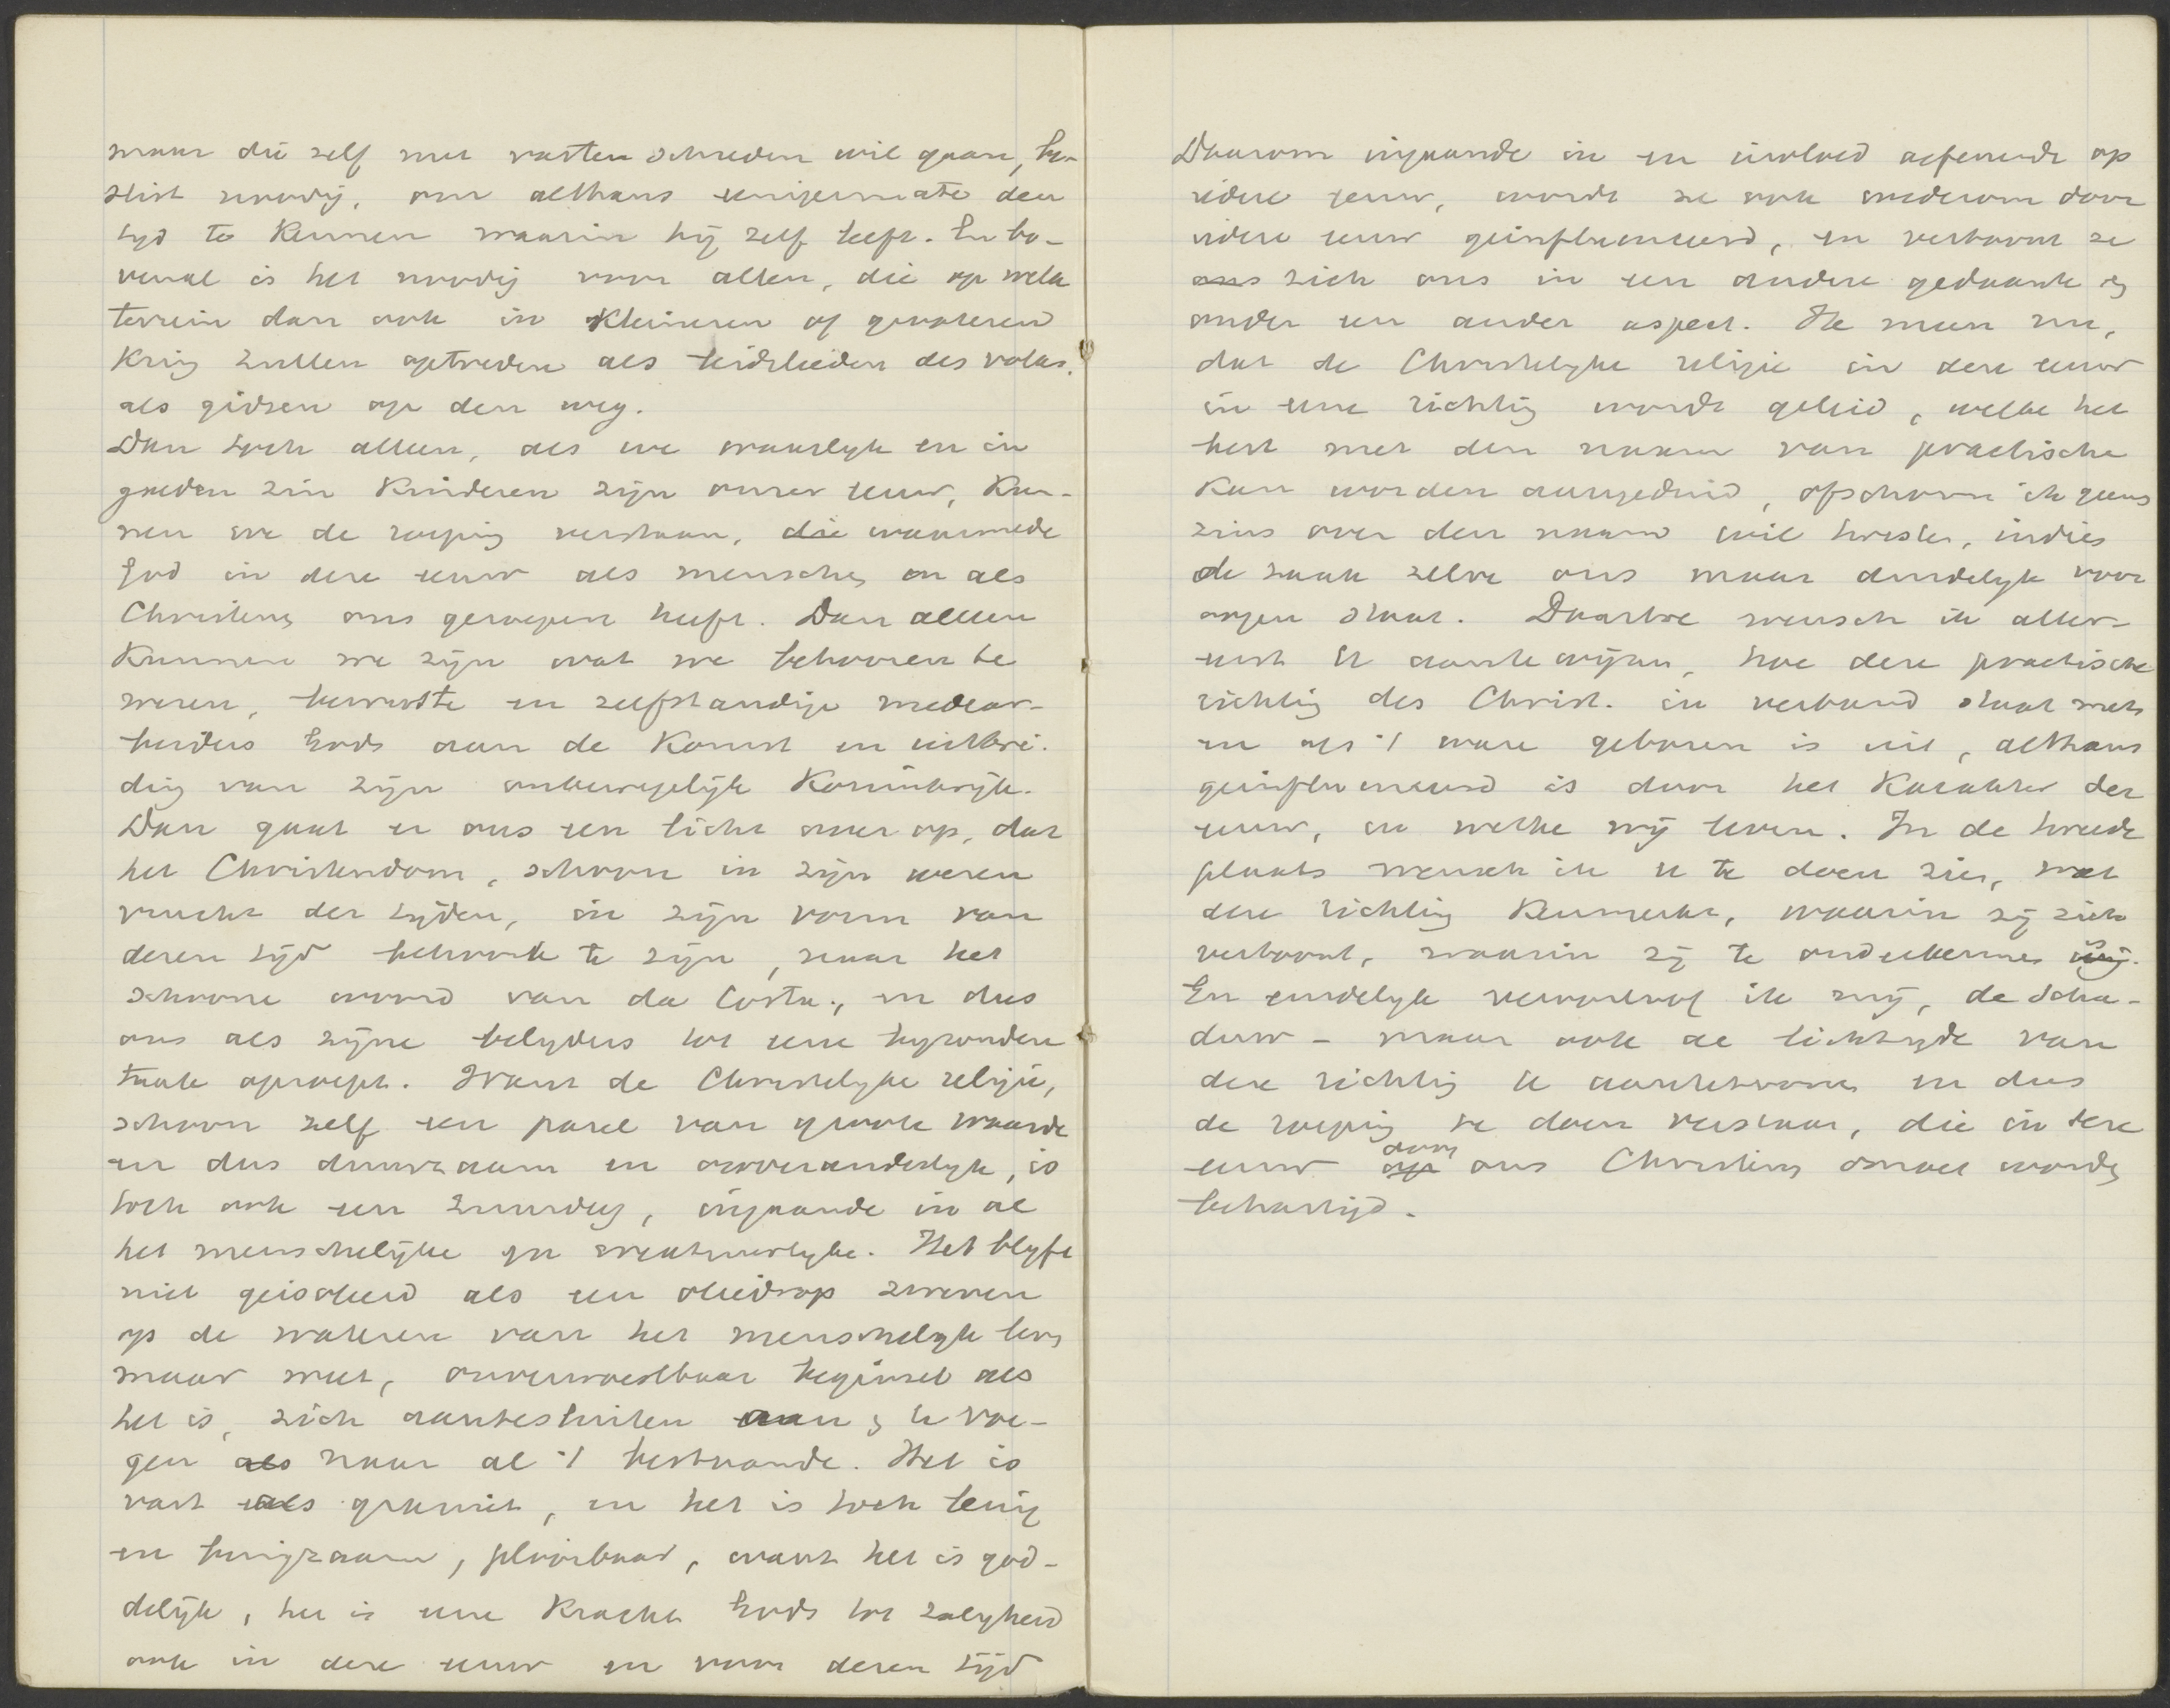 maar die zelf met vasten schreden wil gaan, be-
slist noodig, om althans eenigermate den
tijd te kennen waarin hij zelf leeft. En bo-
venal is het noodig voor allen, die op welk
terrein dan ook in kleineren of grooteren
kring zullen optreden als leidslieden des volks,
als gidsen op den weg.
Dan toch alleen, als we waarlyk en in
goeden zin kinderen zijn onzer eeuw, kun-
nen we de roeping verstaan, die waarmede
God in deze eeuw als menschen en als
Christenen ons geroepen heeft. Dan alleen
kunnen we zijn wat we behooren te
wezen, bewuste en zelfstandige medear-
beiders Gods aan de komst en uitbrei-
ding van zijn onbewegelijk Koninkrijk.
Dan gaat er ons een licht over op, dat
het Christendom, schoon in zijn wezen
vrucht der tijden, in zijn vorm van
dezen tijd behoort te zijn, naar het
schoone woord van da Costa, en dus
ons als zijne belyders tot eene byzondere
taak oproept. Want de Christelyke religie,
schoon zelf een parel van groote waarde
en dus duurzaam en onveranderlyk, is
toch ook een zuurdeeg, ingaande in al
het menschelijke en creatuurlyke. Het blyft
niet geisoleerd als een oliedrop zweven
op de wateren van het menschelyk leven
maar weet, onverwoestbaar beginsel als
het is, zich aantesluiten aan en te voe-
gen als naar al 't bestaande. Het is
vast als graniet, en het is toch lenig
en buigzaam, plooibaar, want het is god-
delijk, het is eene kracht Gods tot zaligheid
ook in deze eeuw en voor dezen tijd
Daarom ingaande in en invloed oefenende op
iedere eeuw, wordt ze ook wederom door
iedere eeuw geinfluenceerd, en vertoont ze
ons zich ons in een andere gedaante en
onder een ander aspect. Ik meen nu,
dat de Christelyke religie in deze eeuw
in eene richting wordt geleid, welke het
best met den naam van practische
kan worden aangeduid, ofschoon ik geens-
zins over den naam wil twisten, indien
de zaak zelve ons maar duidelyk voor
oogen staat. Daartoe wensch ik aller-
eerst U aantewijzen, hoe deze practische
richting des Christ. in verband staat met
en als 't ware geboren is uit, althans
geinfluenceerd is door het karakter der
eeuw, in welke wij leven. In de tweede
plaats wensch ik u te doen zien, wat
deze richting kenmerkt, waarin zij zich
vertoont, waarin zij te onderkennen is.
En eindelyk veroorloof ik mij, de scha-
duw - maar ook de lichtzyde van
deze richting U aantetoonen en dus
de roeping te doen verstaan, die in deze
eeuw op door ons Christenen omvat wordt
behartigd.